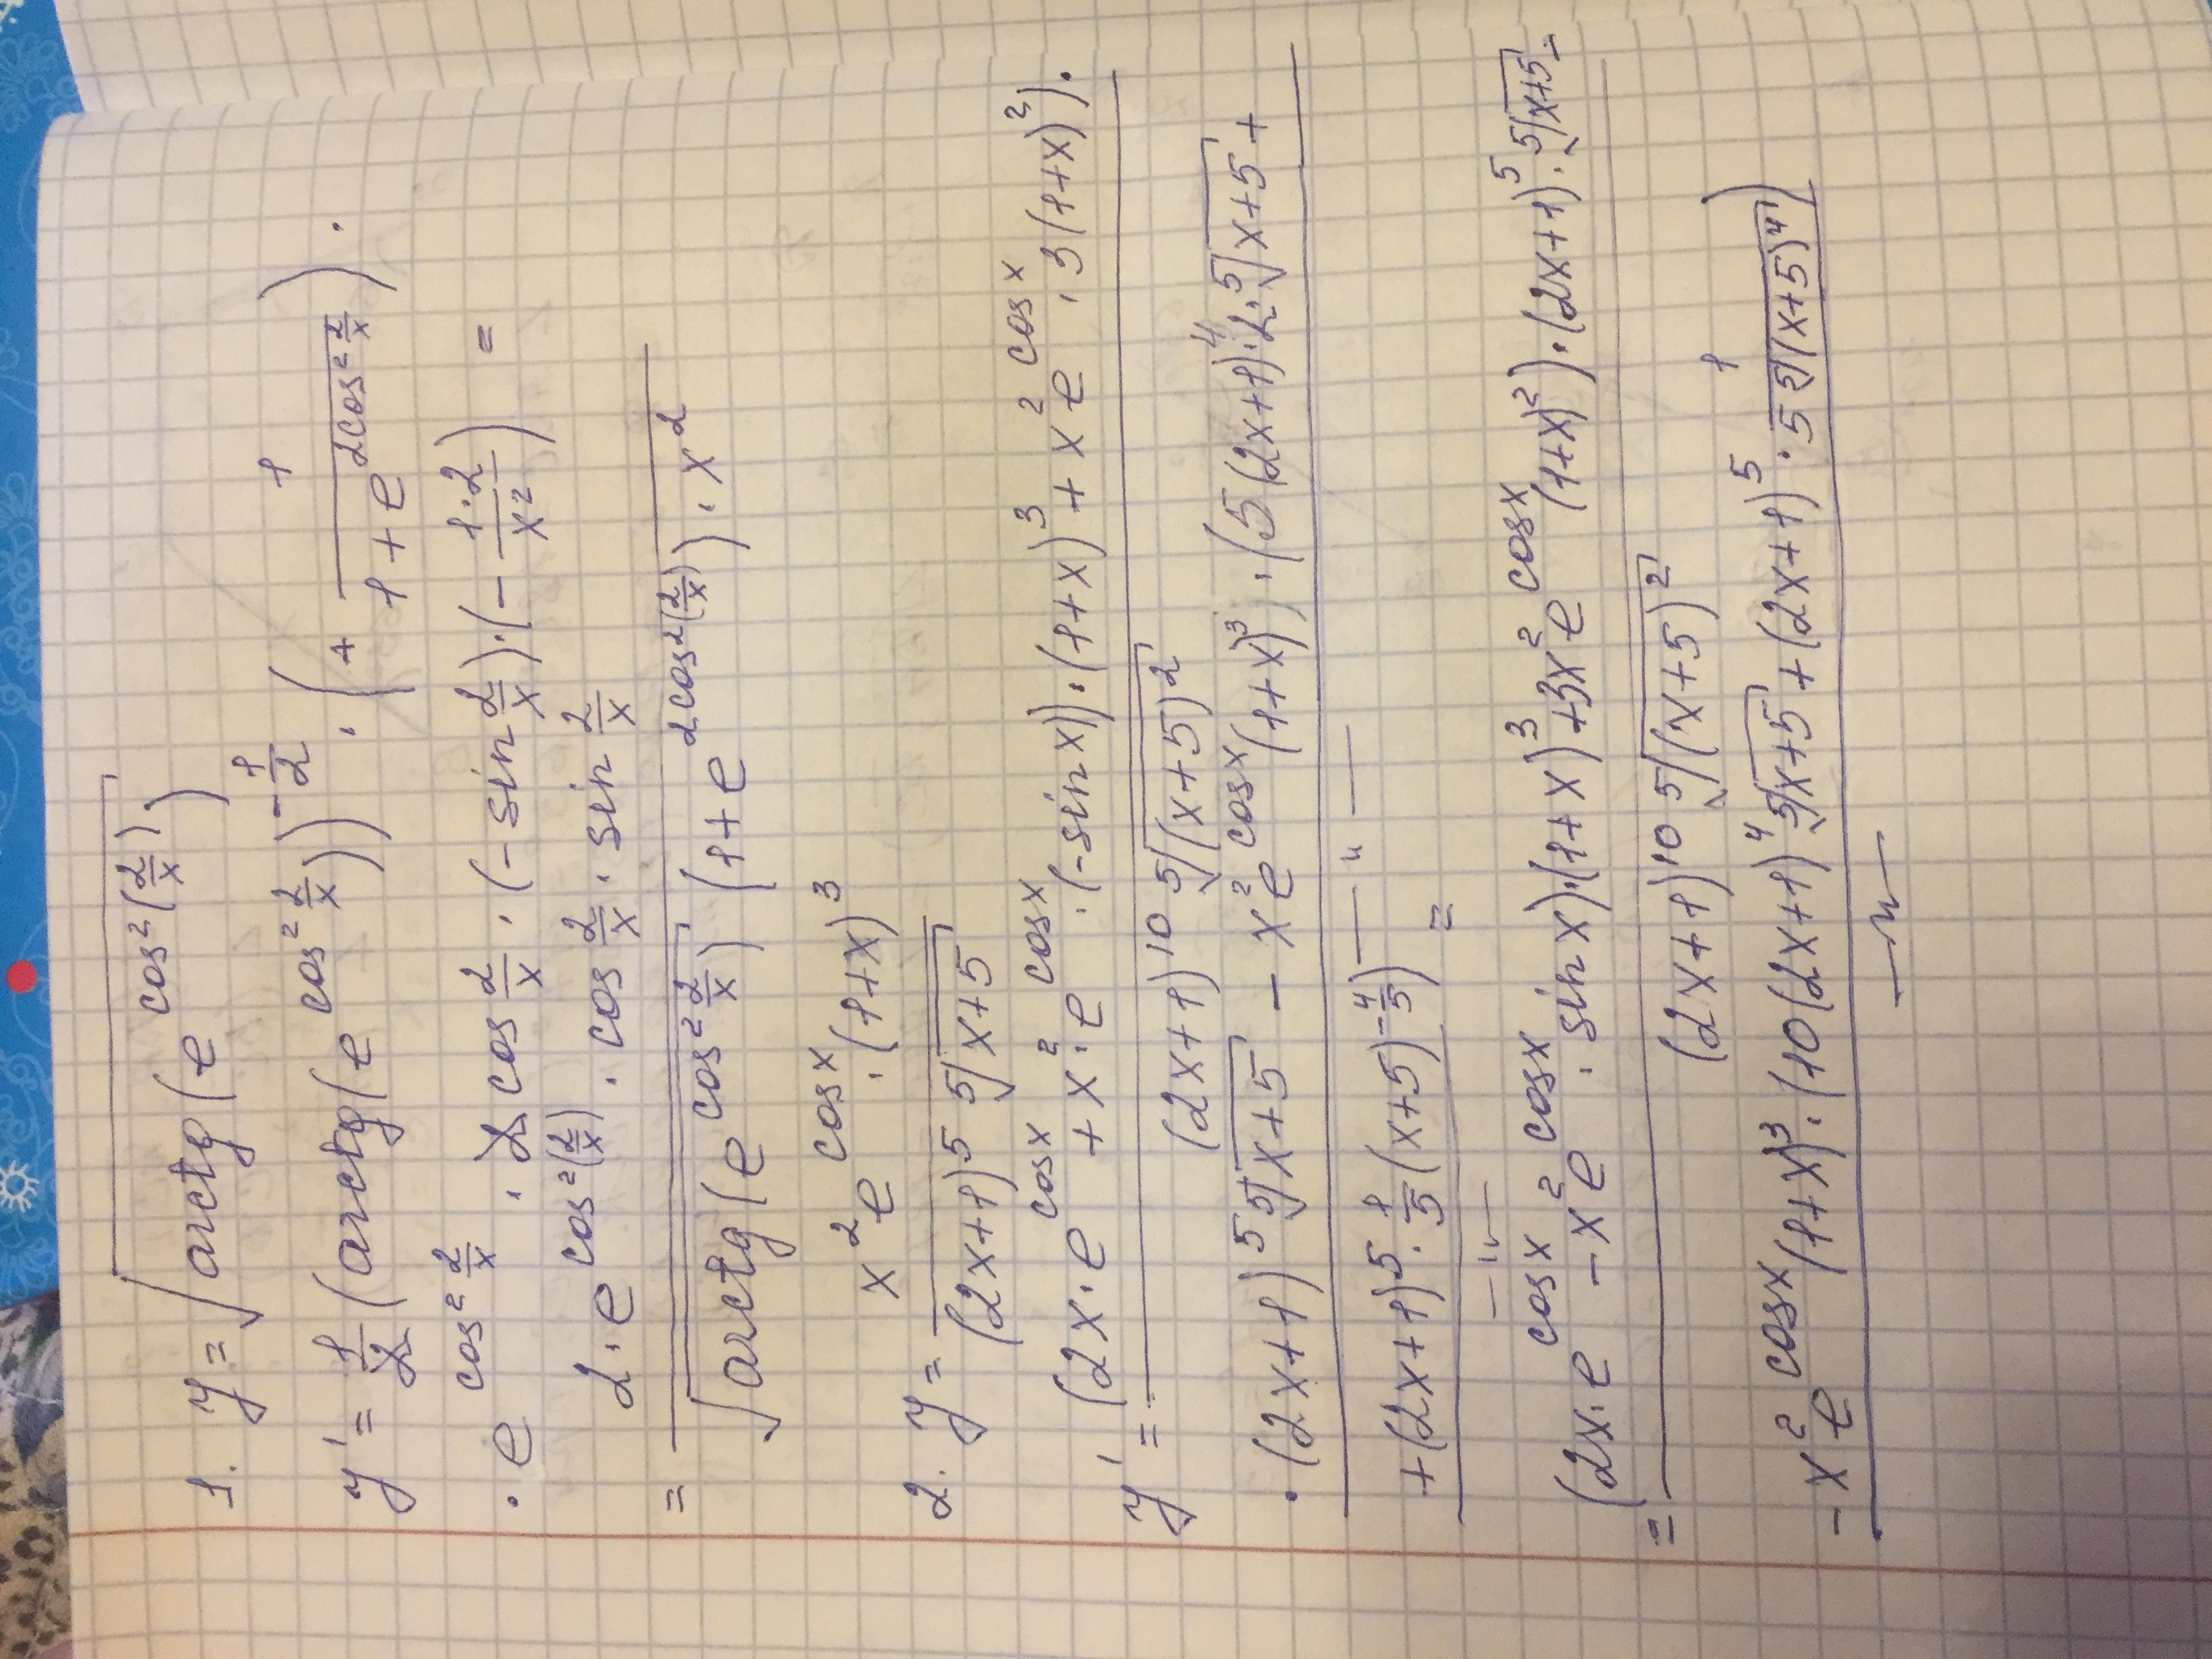 1. y = √(arctg(e^(cos²(2/x))))
y' = 1/2 (arctg(e^(cos² 2/x)))^(-1/2) · (+ 1/(1+e^(2cos² 2/x))) ·
· e^(cos² 2/x) · 2 cos 2/x · (-sin 2/x) · (- (1·2)/x²) =
= (2 · e^(cos²(2/x)) · cos 2/x · sin 2/x) / (√(arctg(e^(cos² 2/x))) (1+e^(2cos²(2/x))) · x²)
2. y = (x² e^(cosx) · (1+x)³) / ((2x+1)⁵ ⁵√(x+5))
y' = (2x · e^(cosx) + x² · e^(cosx) · (-sin x)) · (1+x)³ + x² e^(cosx) · 3(1+x)²) ·
(2x+1)¹⁰ ⁵√((x+5)²)
· (2x+1)⁵ ⁵√(x+5) - x² e^(cosx) (1+x)³) · (5(2x+1)⁴ · 2 · ⁵√(x+5) +
— " —
+ (2x+1)⁵ · 1/5 (x+5)^(-4/5)) =
— " —
= (2x · e^(cosx) - x² e^(cosx) · sin x) · (1+x)³ + 3x² e^(cosx) (1+x)²) · (2x+1)⁵ · ⁵√(x+5) -
(2x+1)¹⁰ ⁵√((x+5)²)
- x² e^(cosx) (1+x)³ · (10(2x+1)⁴ ⁵√(x+5) + (2x+1)⁵ · 1/(5 ⁵√((x+5)⁴)))
— " —